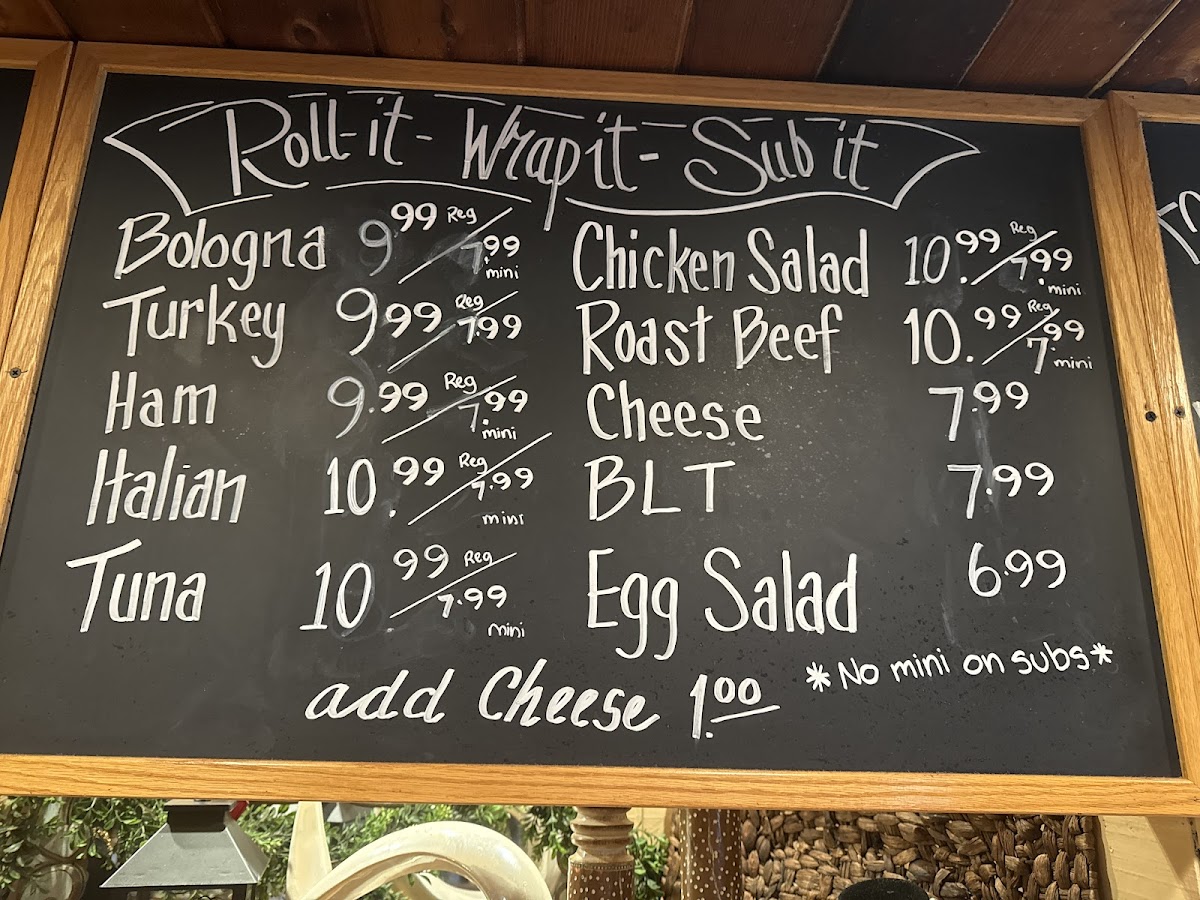 Roll-it - Wrap it - Sub it
Bologna 9 99 Reg / 7.99 mini
Turkey 9 99 Reg / 7.99
Ham 9.99 Reg / 7.99 mini
Italian 10.99 Reg / 7.99 mini
Tuna 10 99 Reg / 7.99 mini
Chicken Salad 10.99 Reg / 7.99 mini
Roast Beef 10.99 Reg / 7.99 mini
Cheese 7.99
BLT 7.99
Egg Salad 6.99
*No mini on subs*
add Cheese 1.00